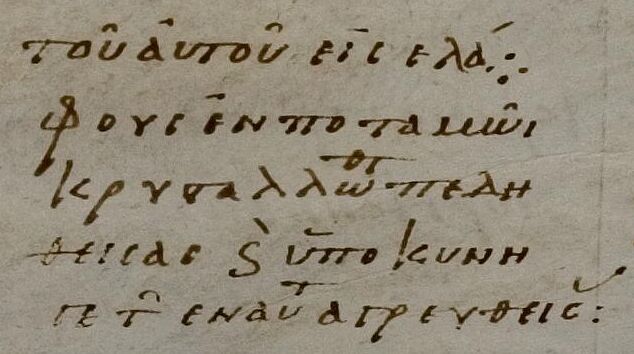 τοῦ ἀυτοῦ εἰς ελά
φους ἐν ποταμῶι
κρυσταλλωθτ πεδη
θεισας ϗ ὑπο κυνη
γετ ἐν αυτ αγρευθεισ: